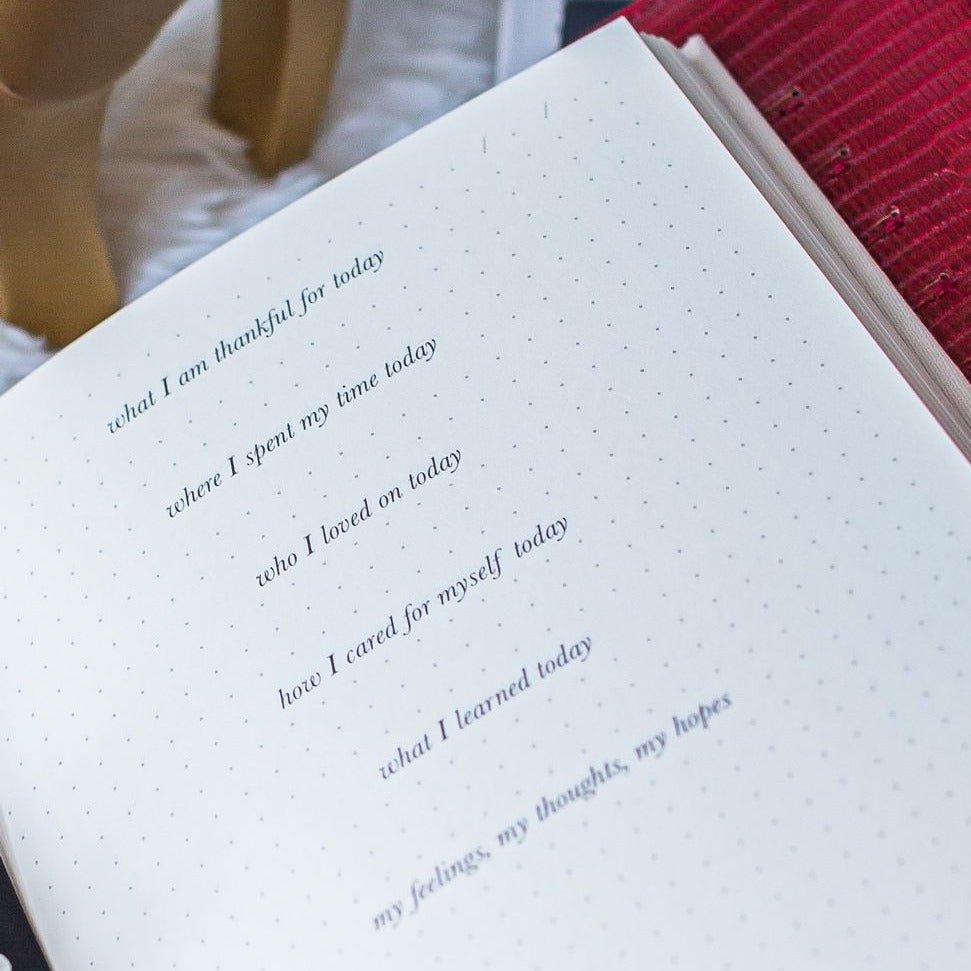 what I am thankful for today
where I spent my time today
who I loved on today
how I cared for myself today
what I learned today
my feelings, my thoughts, my hopes